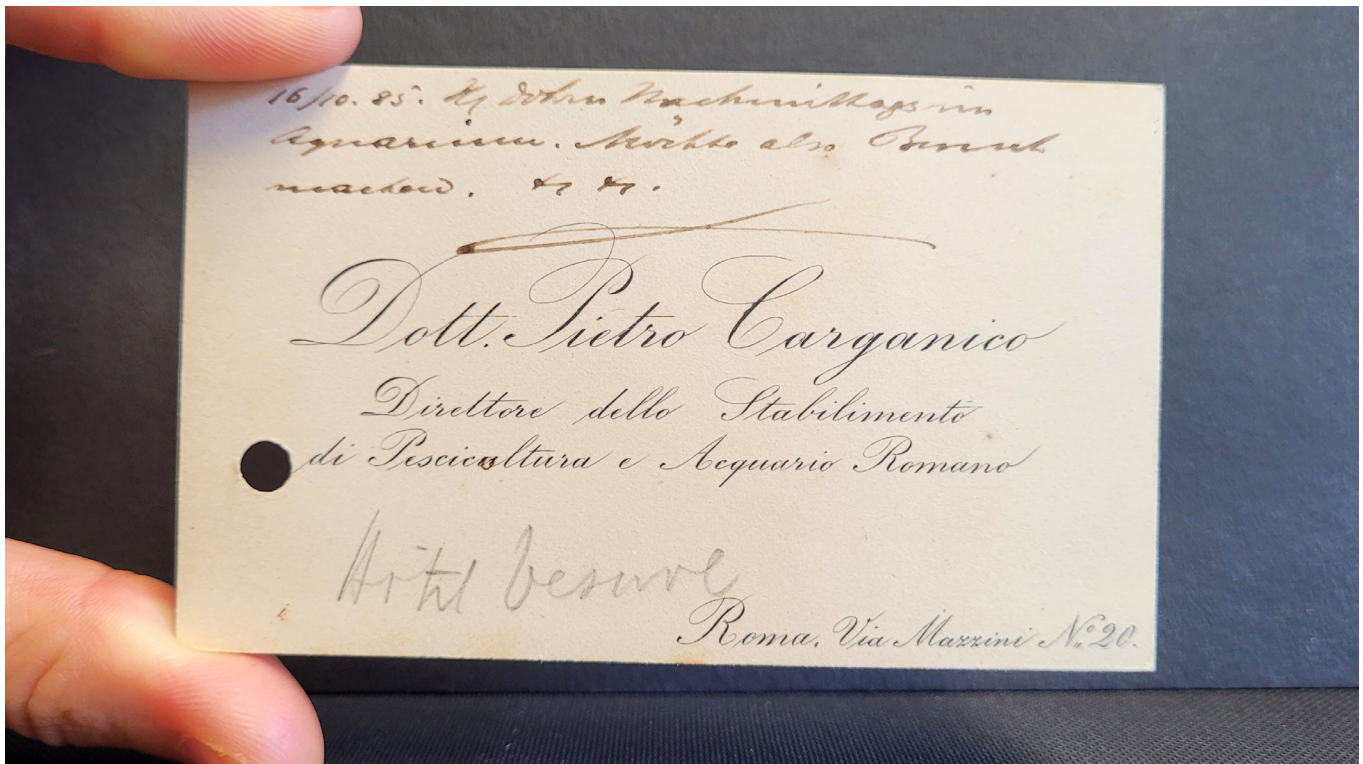 16/10. 85. Hr Dohrn Nachmittags im
Aquarium. Möchte also Besuch
machen.
Dott. Pietro Carganico
Direttore dello Stabilimento
di Pescicultura e Acquario Romano
Hôtel Vesuve
Roma, Via Mazzini No. 20.